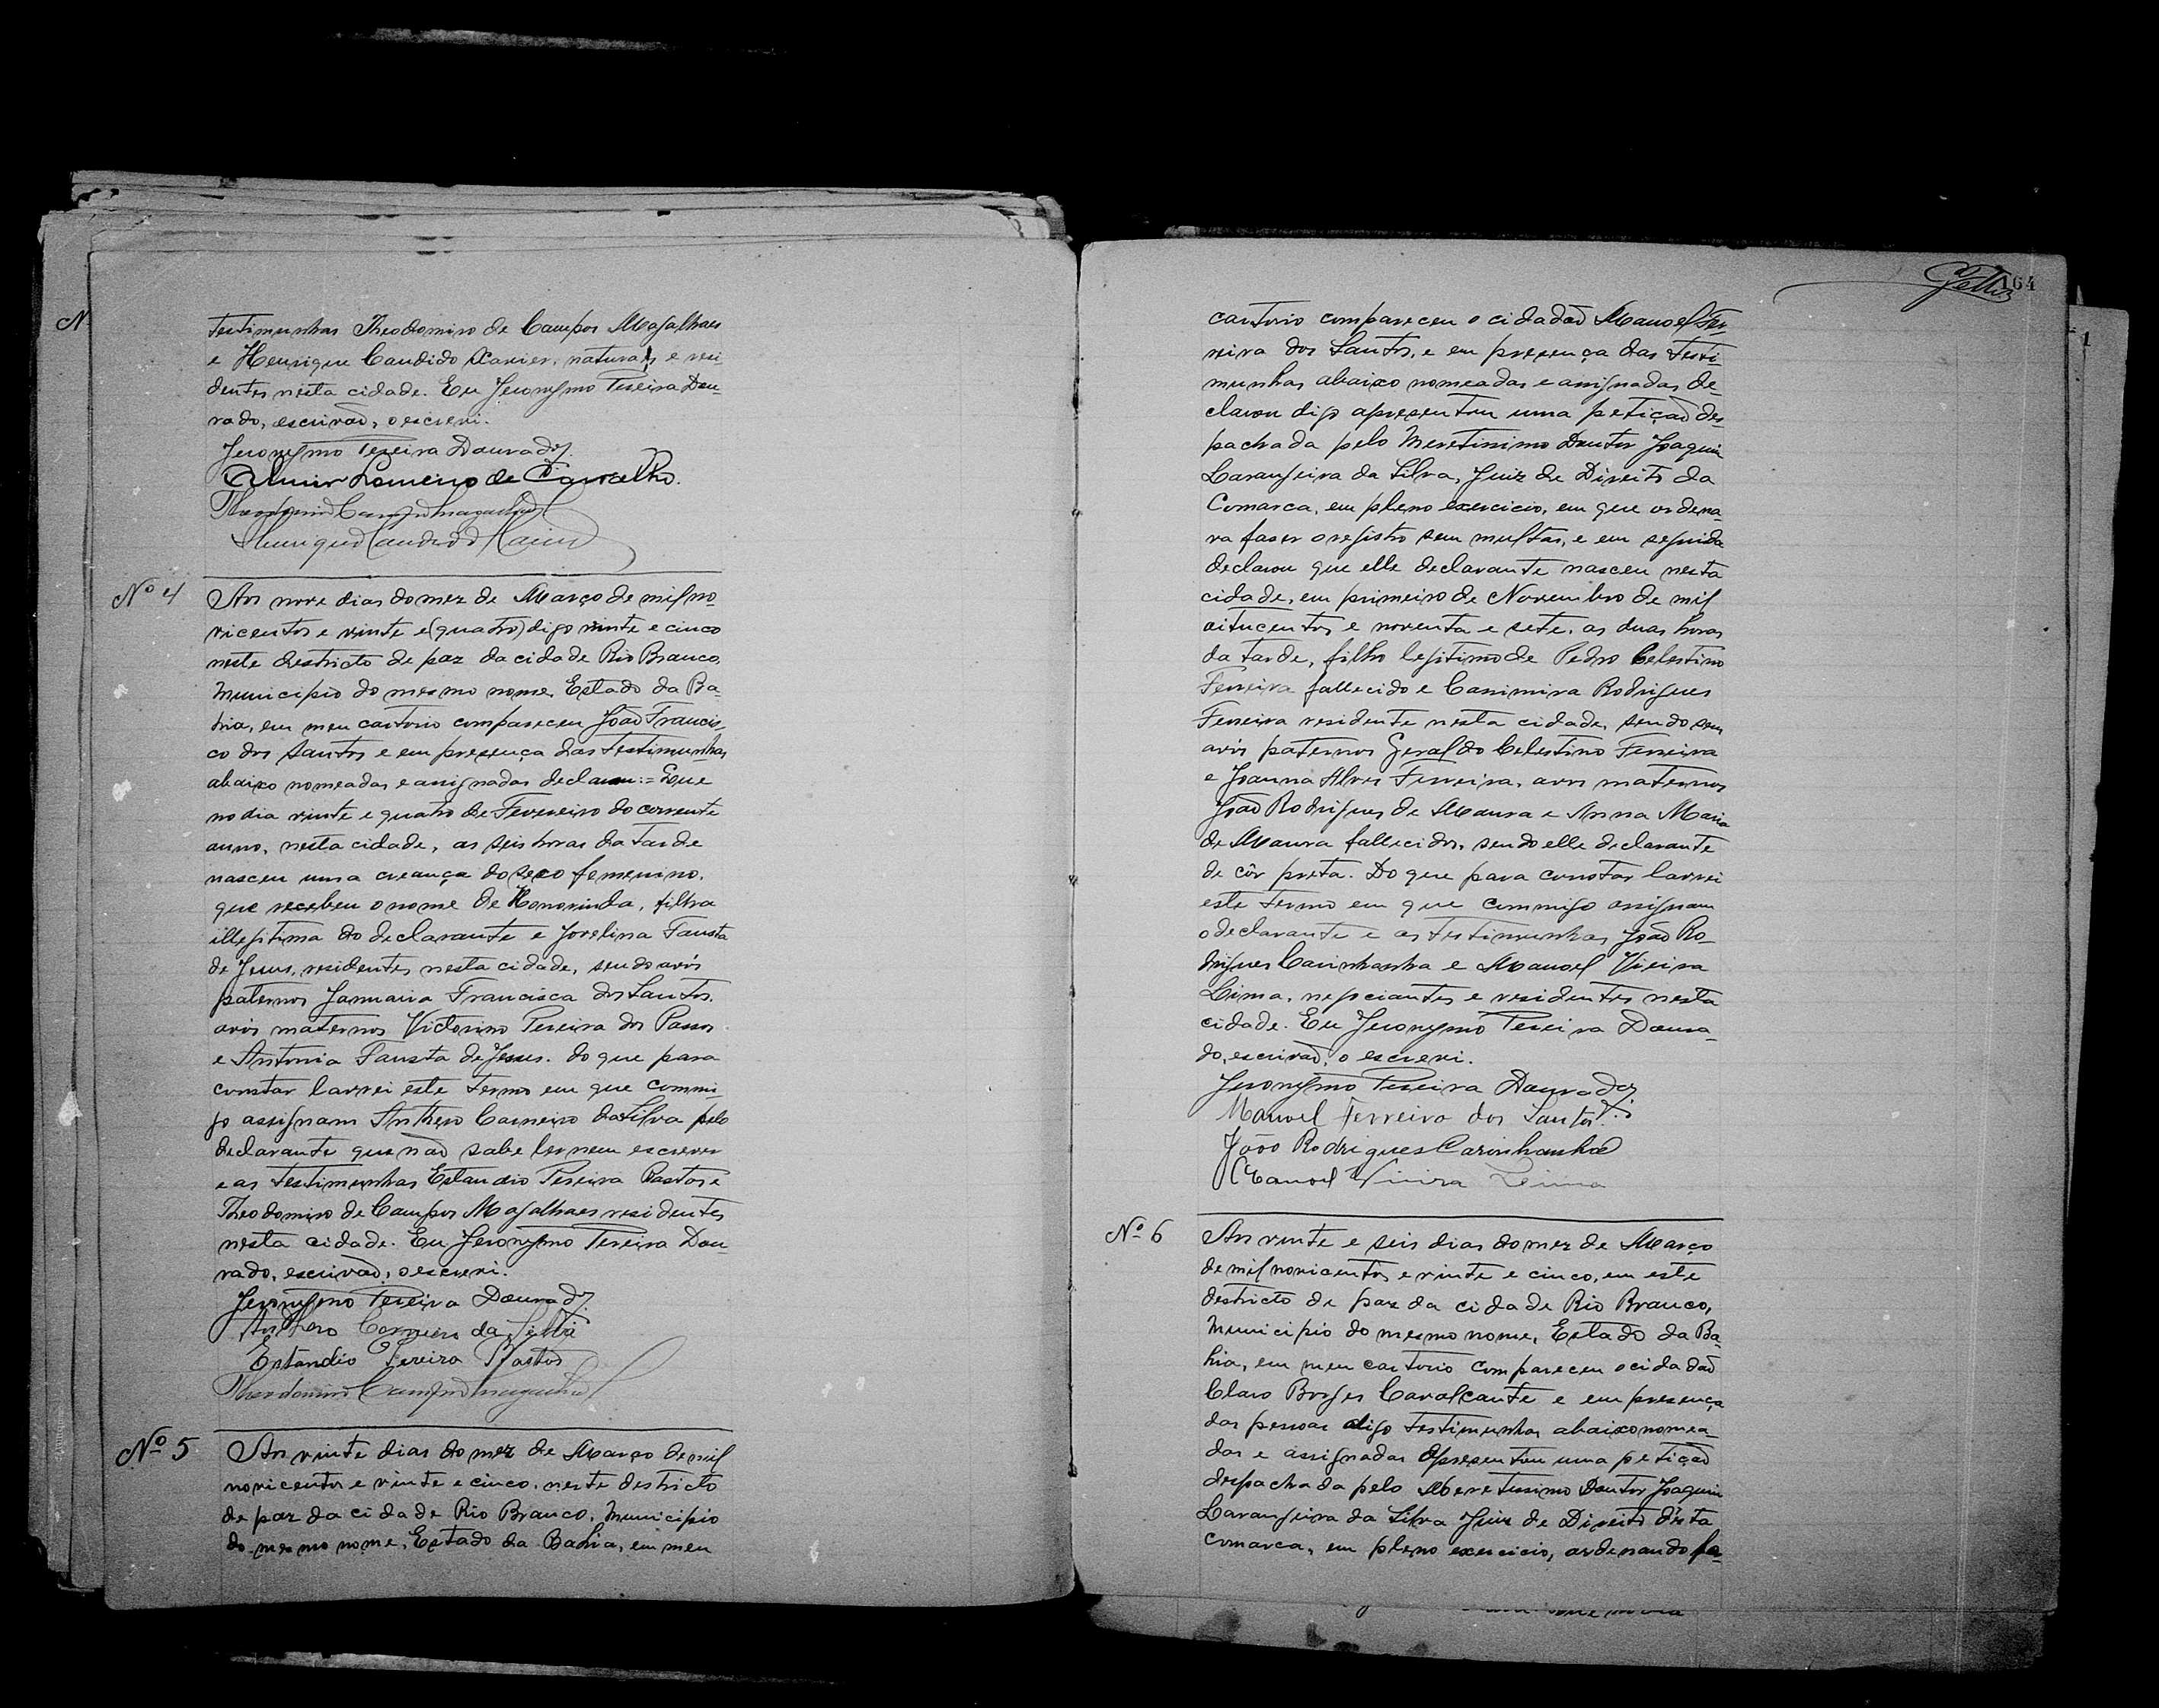 testimunhas Theodomiro de Campos Magalhaes
e Henrique Candido Xavier, naturaes e resi-
dentes nesta cidade. Eu Jeronymo Pereira Dou-
rado, escrivaõ, o escrevi.
Jeronymo Pereira Dourado.
Almir Romeiro de Carvalho.
Theodomiro Campos Magalhães
Henrique Candido Xavier
Nº 4
Aos nove dias do mez de Março de mil no-
vicentos e vinte e (quatro) digo vinte e cinco
neste destricto de paz da cidade Rio Branco,
Municipio do mesmo nome, Estado da Ba-
hia, em meu cartorio compareceu João Francis-
co dos Santos e em presença das testimunhas
abaixo nomeadas e assignadas declarou:= Que
no dia vinte e quatro de Fevereiro do corrente
anno, nesta cidade, as seis horas da tarde
nasceu uma creança do sexo femenino,
que recebeu o nome de Honorinda, filha
illegitima do declarante e Jovelina Fausta
de Jesus, residentes nesta cidade, sendo avós
paternos Januaria Francisca dos Santos,
avós maternos Victorino Pereira dos Passos
e Antonia Fausta de Jesus. do que para
constar lavrei este termo em que commi-
go assignam Anthero Carneiro da Silva pelo
declarante que não sabe ler nem escrever
e as testimunhas Estandio Pereira Bastos e
Theodomiro de Campos Magalhaes residentes
nesta cidade. Eu Jeronymo Pereira Dou-
rado, escrivaõ, o escrevi.
Jeronymo Pereira Dourado.
Anthero Carneiro da Silva
Estandio Pereira Bastos
Theodomiro Campos Magalhães
Nº 5
Aos vinte dias do mez de Março de mil
novicentos e vinte e cinco, neste destricto
de paz da cidade Rio Branco, Municipio
do mesmo nome, Estado da Bahia, em meu
164
cartorio compareceu o cidadaõ Manoel Fer-
reira dos Santos, e em presença das testi-
munhas abaixo nomeadas e assignadas de-
clarou digo apresentou uma petiçaõ des-
pachada pelo Meretissimo Doutor Joaquim
Laranjeira da Silva, Juiz de Direito da
Comarca, em pleno exercicio, em que ordena-
va faser o registro sem multas, e em seguida
declarou que elle declarante nasceu nesta
cidade, em primeiro de Novembro de mil
oitucentos e noventa e sete, as duas horas
da tarde, filho legitimo de Pedro Celestino
Ferreira fallecido e Casimira Rodrigues
Ferreira residente nesta cidade, sendo seus
avós paternos Geraldo Celestino Ferreira
e Joanna Alves Ferreira, avós maternos
João Rodrigues de Moura e Anna Maria
de Moura fallecidos, sendo elle declarante
de côr preta. Do que para constar lavrei
este termo em que commigo assignam
o declarante e as testimunhas João Ro-
drigues Carinhanha e Manoel Vieira
Lima, negociantes e residentes nesta
cidade. Eu Jeronymo Pereira Doura-
do, escrivaõ, o escrevi.
Jeronymo Pereira Dourado.
Manoel Ferreira dos Santos.
João Rodrigues Carinhanha
Manoel Vieira Lima
Nº 6
Aos vinte e seis dias do mez de Março
de mil novicentos e vinte e cinco, em este
destricto de paz da cidade Rio Branco,
Municipio do mesmo nome, Estado da Ba-
hia, em meu cartorio compareceu o cidadaõ
Claro Borges Cavalcante e em presença
das pessoas digo testimunhas abaixo nomea-
das e assignadas apresentou uma petiçaõ
despachada pelo Meretissimo Doutor Joaquim
Laranjeira da Silva Juiz de Direito desta
comarca, em pleno exercicio, ordenando fa-